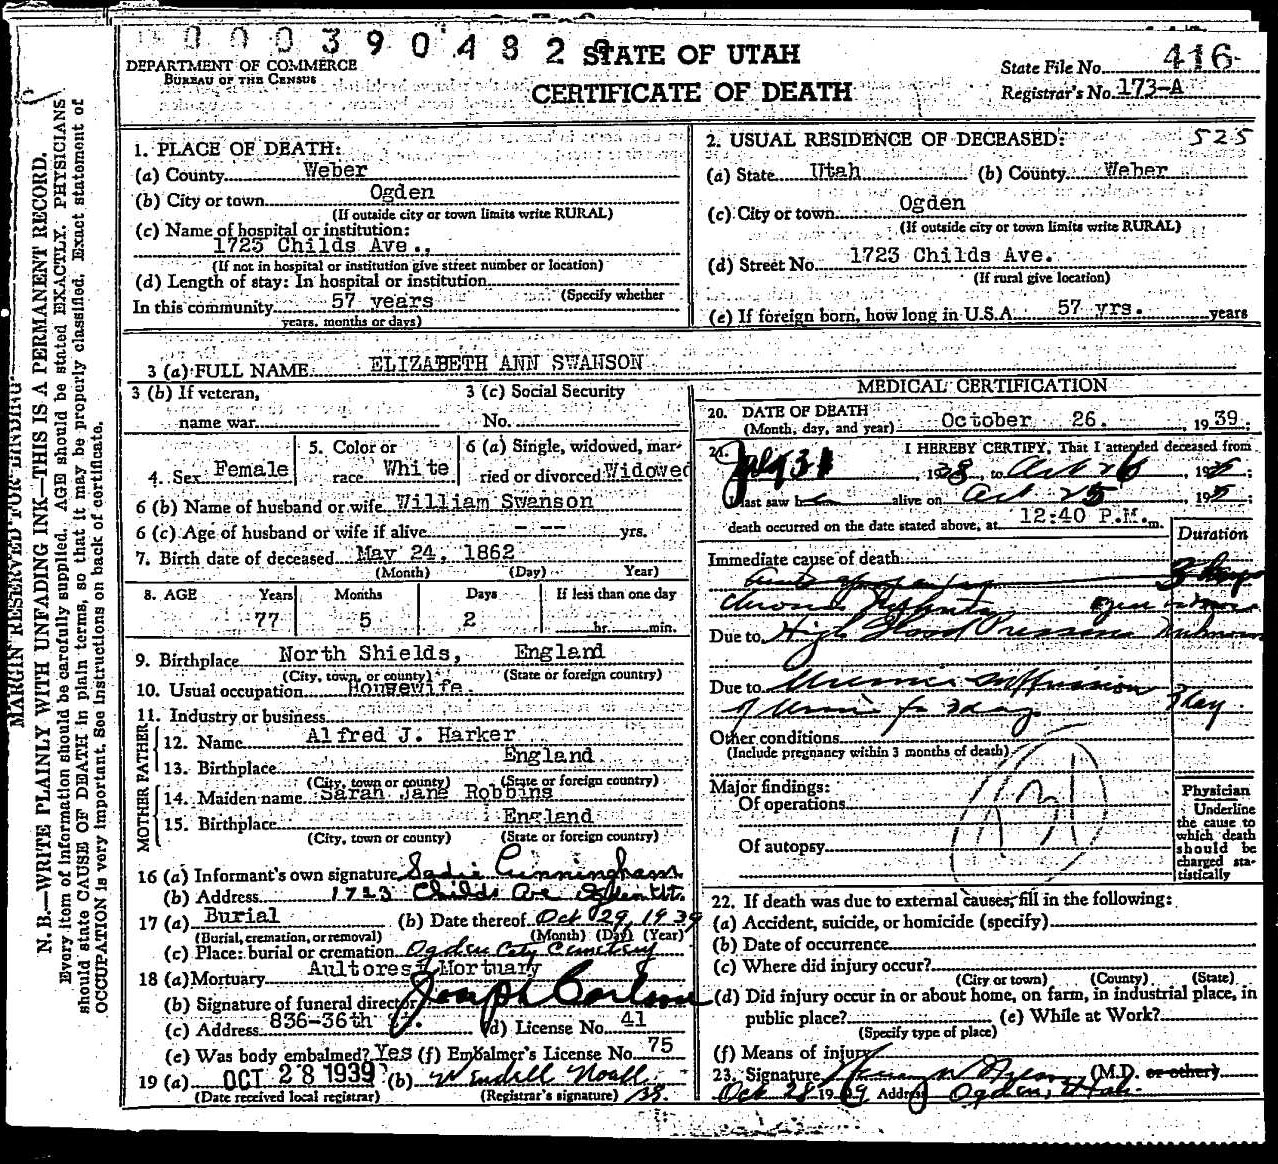 0003904829
STATE OF UTAH
CERTIFICATE OF DEATH
DEPARTMENT OF COMMERCE
BUREAU OF THE CENSUS
State File No. 416
Registrar's No. 173-A
MARGIN RESERVED FOR BINDING
N. B.—WRITE PLAINLY WITH UNFADING INK—THIS IS A PERMANENT RECORD.
Every item of information should be carefully supplied. AGE should be stated EXACTLY. PHYSICIANS
should state CAUSE OF DEATH in plain terms, so that it may be properly classified. Exact statement of
OCCUPATION is very important. See instructions on back of certificate.
1. PLACE OF DEATH:
(a) County Weber
(b) City or town Ogden
(If outside city or town limits write RURAL)
(c) Name of hospital or institution:
1723 Childs Ave.,
(If not in hospital or institution give street number or location)
(d) Length of stay: In hospital or institution
(Specify whether
In this community 57 years
years, months or days)
2. USUAL RESIDENCE OF DECEASED: 525
(a) State Utah (b) County Weber
(c) City or town Ogden
(If outside city or town limits write RURAL)
(d) Street No. 1723 Childs Ave.
(If rural give location)
(e) If foreign born, how long in U.S.A. 57 yrs. years
3 (a) FULL NAME ELIZABETH ANN SWANSON
3 (b) If veteran,
name war
3 (c) Social Security
No.
4. Sex Female
5. Color or
race White
6 (a) Single, widowed, mar-
ried or divorced Widowed
6 (b) Name of husband or wife William Swanson
6 (c) Age of husband or wife if alive - -- yrs.
7. Birth date of deceased May 24, 1862
(Month) (Day) Year)
8. AGE Years Months Days If less than one day
77 5 2 hr. min.
9. Birthplace North Shields, England
(City, town, or county) (State or foreign country)
10. Usual occupation Housewife.
11. Industry or business
FATHER
12. Name Alfred J. Harker
13. Birthplace England
(City, town or county) (State or foreign country)
MOTHER
14. Maiden name Sarah Jane Robbins
15. Birthplace England
(City, town or county) (State or foreign country)
16 (a) Informant's own signature Sadie Cunningham
(b) Address 1723 Childs Ave Ogden Ut.
17 (a) Burial (b) Date thereof Oct 29, 1939
(Burial, cremation, or removal) (Month) (Day) (Year)
(c) Place: burial or cremation Ogden City Cemetery
18 (a) Mortuary Aultorest Mortuary
(b) Signature of funeral director Joseph Carlson
(c) Address 836-36th St. (d) License No. 41
(e) Was body embalmed? Yes (f) Embalmer's License No. 75
19 (a) OCT 28 1939 (b) Wendell Noall
(Date received local registrar) (Registrar's signature)
MEDICAL CERTIFICATION
20. DATE OF DEATH
(Month, day, and year) October 26. , 1939;
21. I HEREBY CERTIFY, That I attended deceased from
July 31, 1938 to Oct 26, 19
I last saw her alive on Oct 25, 19
death occurred on the date stated above, at 12:40 P.M. m.
Duration
Immediate cause of death
3 days
Chronic Nephritis
Due to High Blood Pressure Unknown
Due to Uremic
for 3 days
Other conditions
(Include pregnancy within 3 months of death)
131
Major findings:
Of operations
Of autopsy
Physician
Underline
the cause to
which death
should be
charged sta-
tistically
22. If death was due to external causes, fill in the following:
(a) Accident, suicide, or homicide (specify)
(b) Date of occurrence
(c) Where did injury occur?
(City or town) (County) (State)
(d) Did injury occur in or about home, on farm, in industrial place, in
public place? (e) While at Work?
(Specify type of place)
(f) Means of injury
23. Signature (M.D. or other)
Oct 28 1939 Address Ogden, Utah